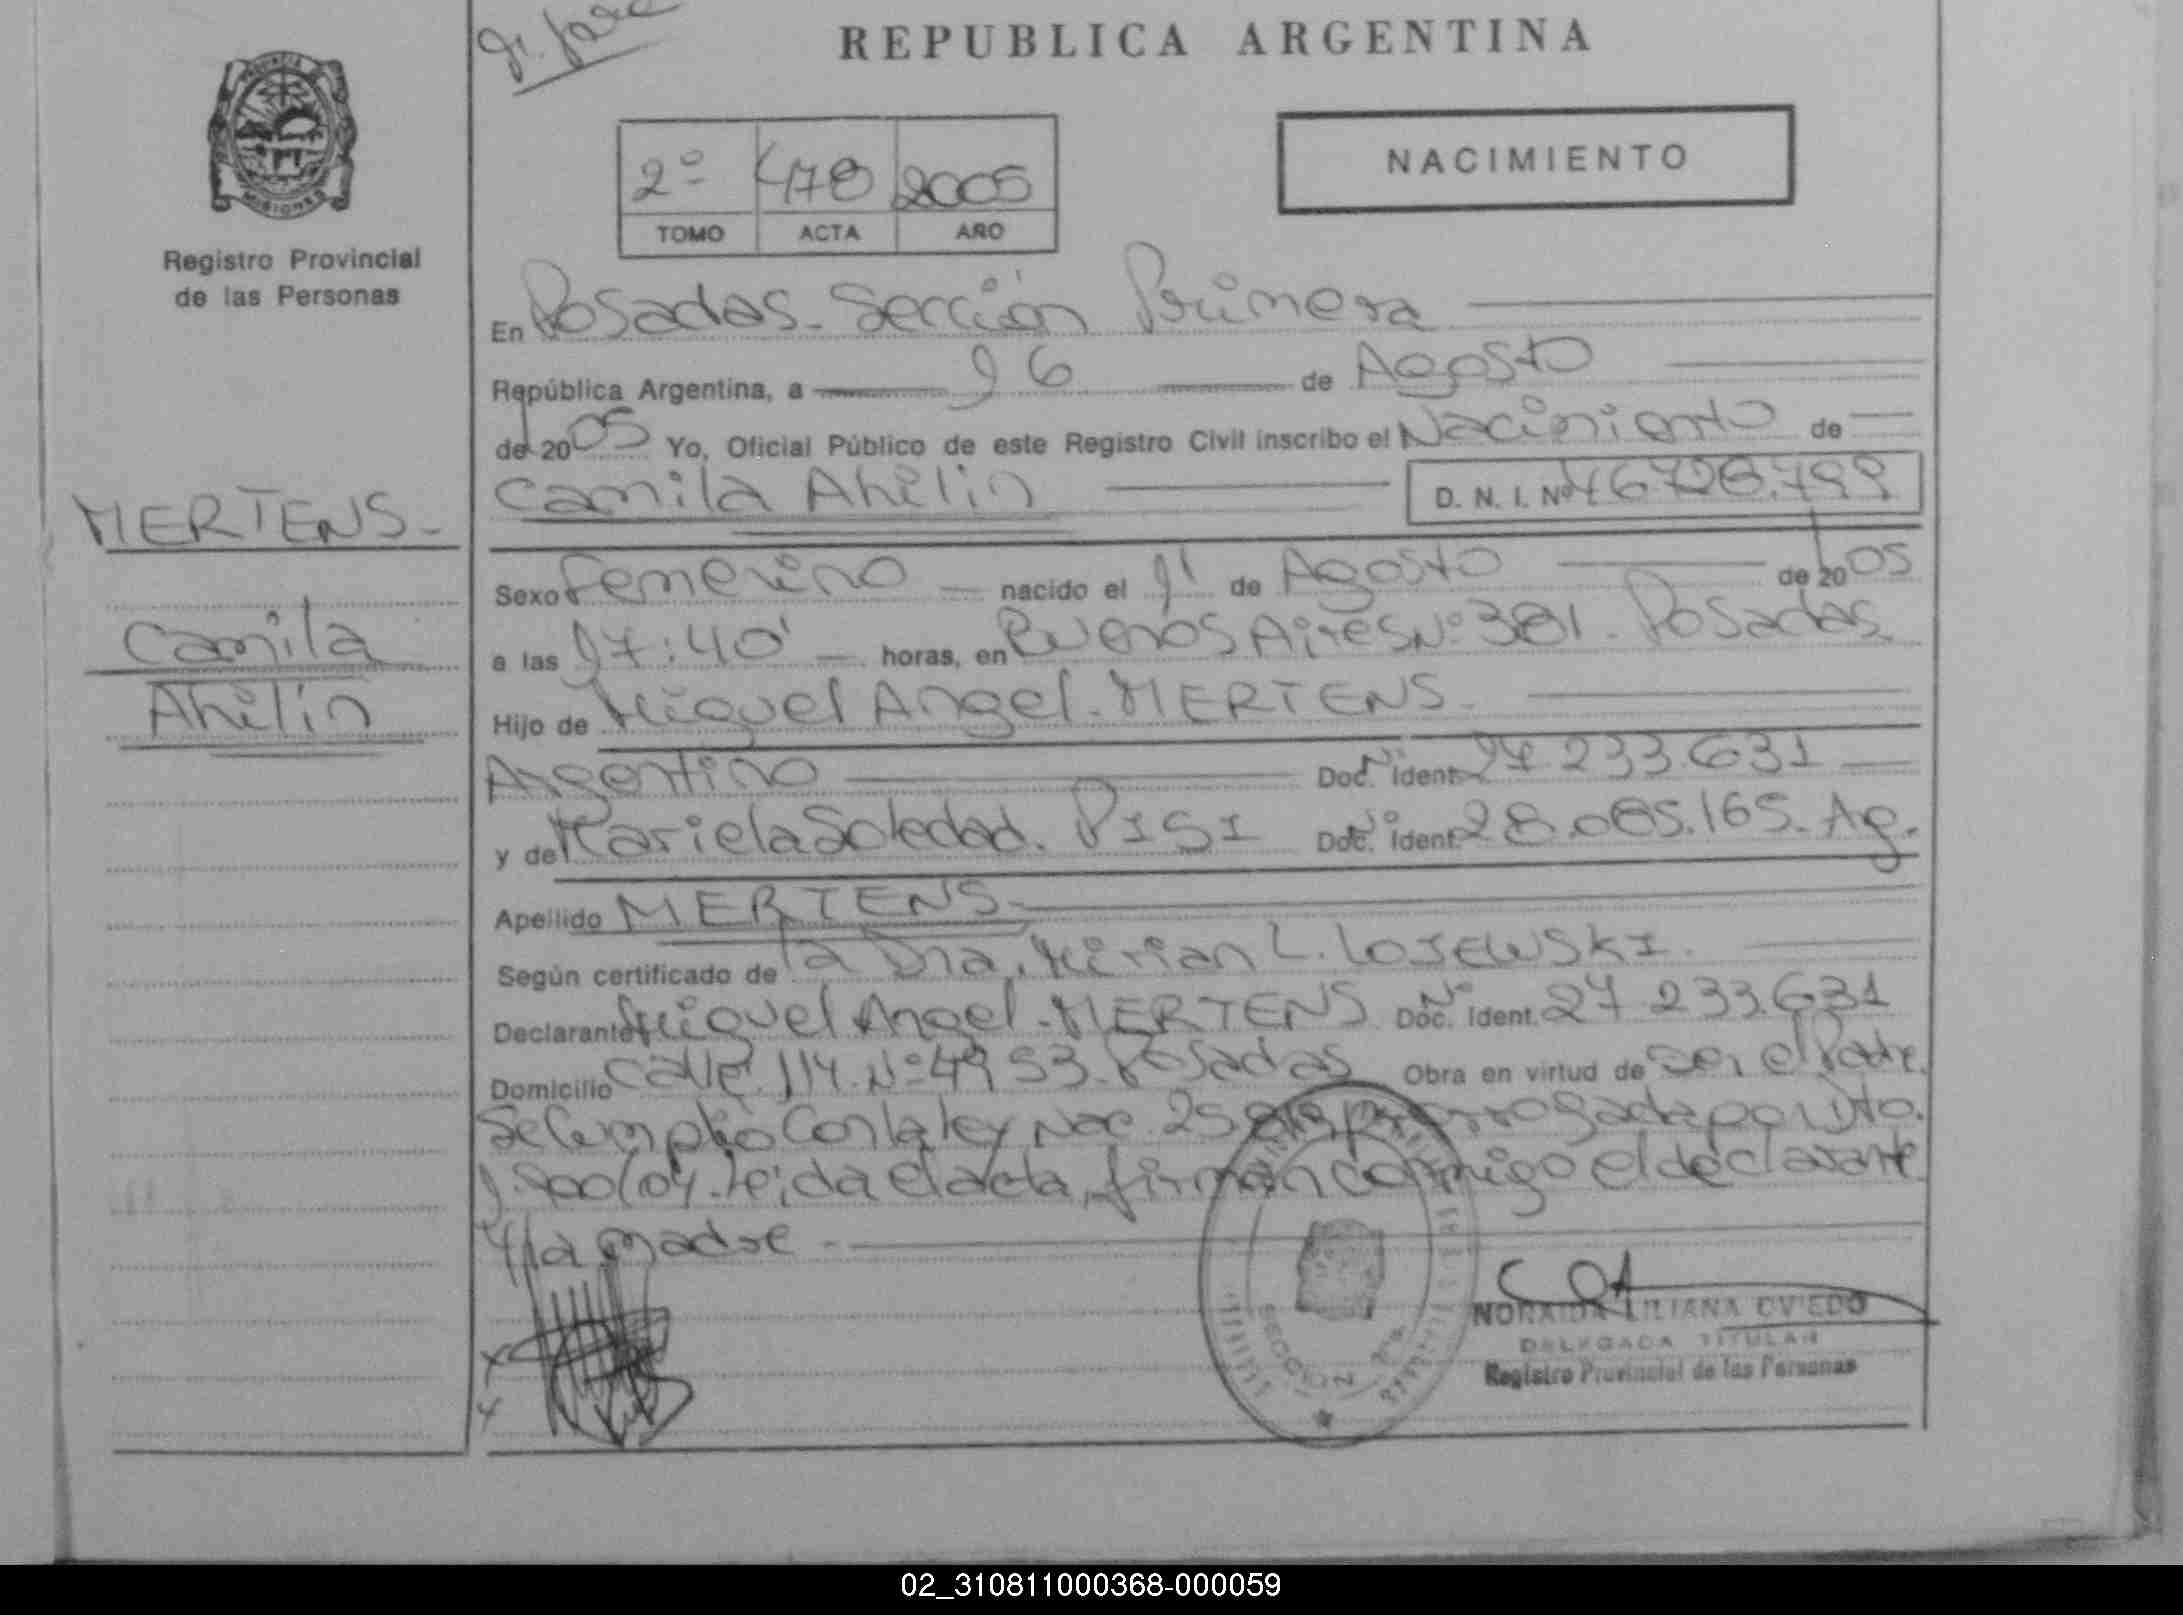 REPUBLICA ARGENTINA
PROVINCIA
MISIONES
Registro Provincial
de las Personas
2º 478 2005
TOMO ACTA AÑO
NACIMIENTO
En Posadas - Sección Primera
República Argentina, a 16 de Agosto
de 2005 Yo, Oficial Público de este Registro Civil inscribo el Nacimiento de
Camila Ahilin D. N. I. Nº 46.728.799
MERTENS -
Camila
Ahilin
Sexo Femenino nacido el 1º de Agosto de 2005
a las 17:40' horas, en Buenos Aires Nº 381 - Posadas
Hijo de Miguel Angel - MERTENS -
Argentino Doc. Nº Ident. 27.233.631
y de Mariela Soledad. PISI Doc. Nº Ident. 28.085.165. Ag.
Apellido MERTENS -
Según certificado de la Dra. Mirian L. LOSEWSKI.
Declarante Miguel Angel - MERTENS Doc. Nº Ident. 27.233.631
Domicilio Calle 114 - Nº 4953 - Posadas Obra en virtud de ser el Padre.
Se Cumplió Con la Ley Nac. 25 prorrogada por Dto.
1.900/04. Leída el acta, firman conmigo el declarante
y la madre -
SECCION
NORAIDA LILIANA OVIEDO
DELEGADA TITULAR
Registro Provincial de las Personas
02_310811000368-000059